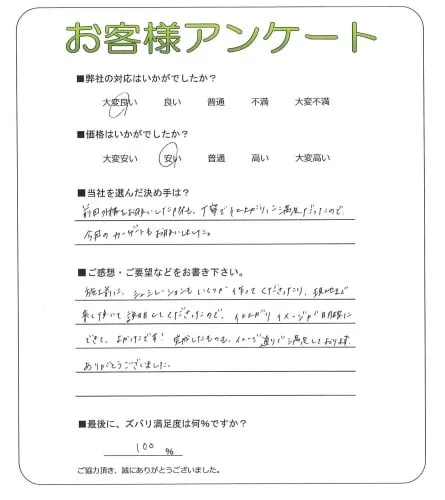 お客様アンケート
■弊社の対応はいかがでしたか？
大変良い 良い 普通 不満 大変不満
■価格はいかがでしたか？
大変安い 安い 普通 高い 大変高い
■当社を選んだ決め手は？
前回外構をお願いした時も、丁寧で仕上がりに満足だったので
今回のカーゲートもお願いしました。
■ご感想・ご要望などをお書き下さい。
施工前に、シュミレーションもいくつか作ってくださったり、現地まで
来て頂いて説明してくださったので、仕上がりイメージが明確に
できて、よかったです！完成したものも、イメージ通りで満足しております
ありがとうございました。
■最後に、ズバリ満足度は何％ですか？
100 ％
ご協力頂き、誠にありがとうございました。